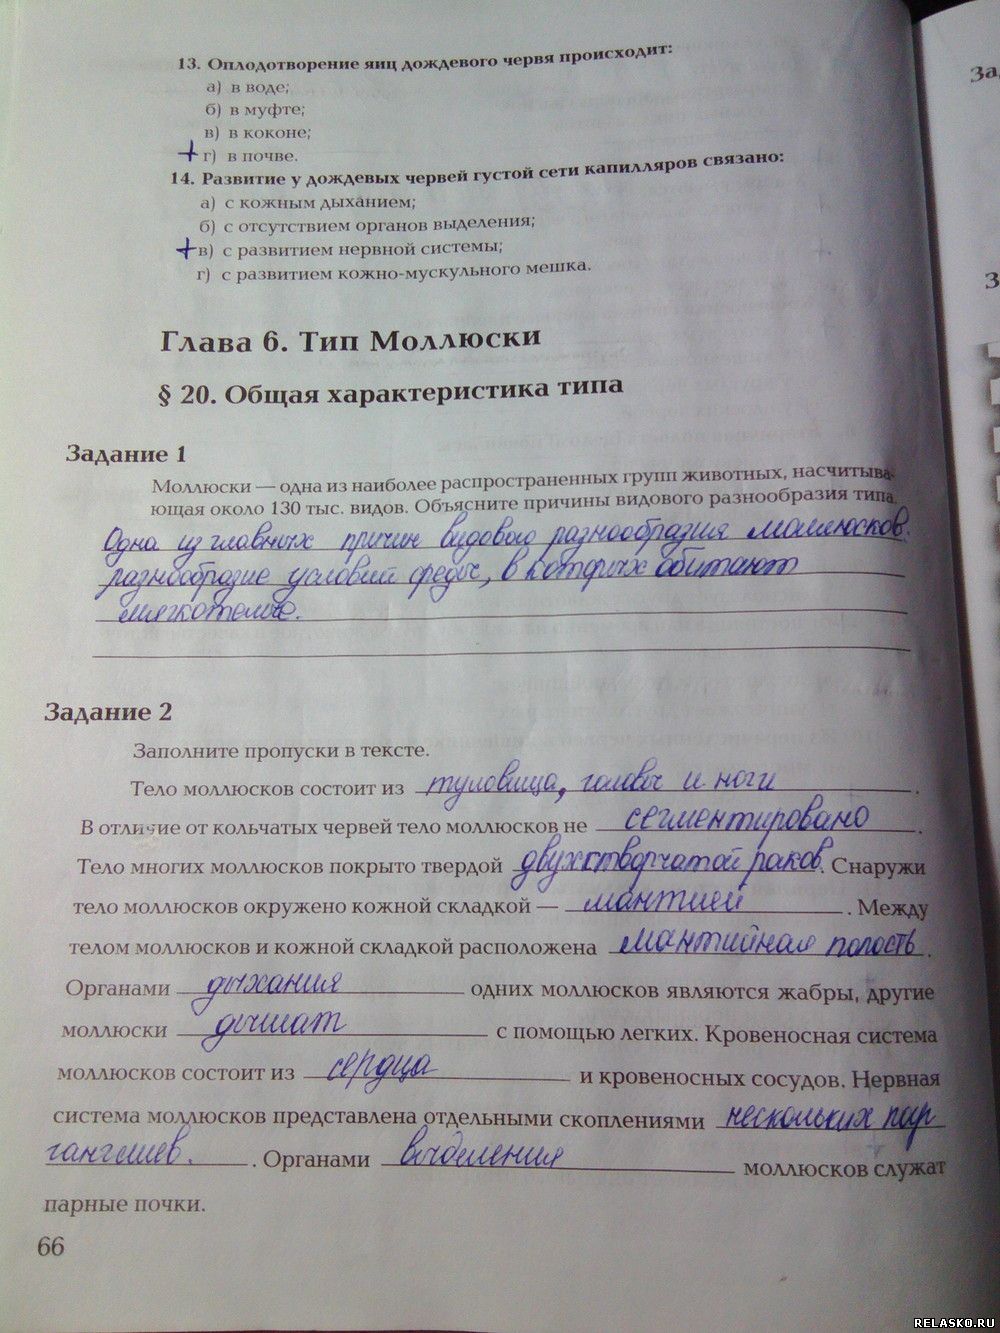 13. Оплодотворение яиц дождевого червя происходит:
а) в воде;
б) в муфте;
в) в коконе;
+ г) в почве.
14. Развитие у дождевых червей густой сети капилляров связано:
а) с кожным дыханием;
б) с отсутствием органов выделения;
+ в) с развитием нервной системы;
г) с развитием кожно-мускульного мешка.
Глава 6. Тип Моллюски
§ 20. Общая характеристика типа
Задание 1
Моллюски — одна из наиболее распространенных групп животных, насчитыва-
ющая около 130 тыс. видов. Объясните причины видового разнообразия типа.
Одна из главных причин видового разнообразия моллюсков.
разнообразие условий среды, в которых обитают
мягкотелые.
Задание 2
Заполните пропуски в тексте.
Тело моллюсков состоит из туловища, головы и ноги .
В отличие от кольчатых червей тело моллюсков не сегментировано .
Тело многих моллюсков покрыто твердой двухстворчатой раков. Снаружи
тело моллюсков окружено кожной складкой — мантией . Между
телом моллюсков и кожной складкой расположена мантийная полость .
Органами дыхания одних моллюсков являются жабры, другие
моллюски дышат с помощью легких. Кровеносная система
моллюсков состоит из сердца и кровеносных сосудов. Нервная
система моллюсков представлена отдельными скоплениями нескольких пар
ганглиев. . Органами выделения моллюсков служат
парные почки.
66
За
З
RELASKO.RU